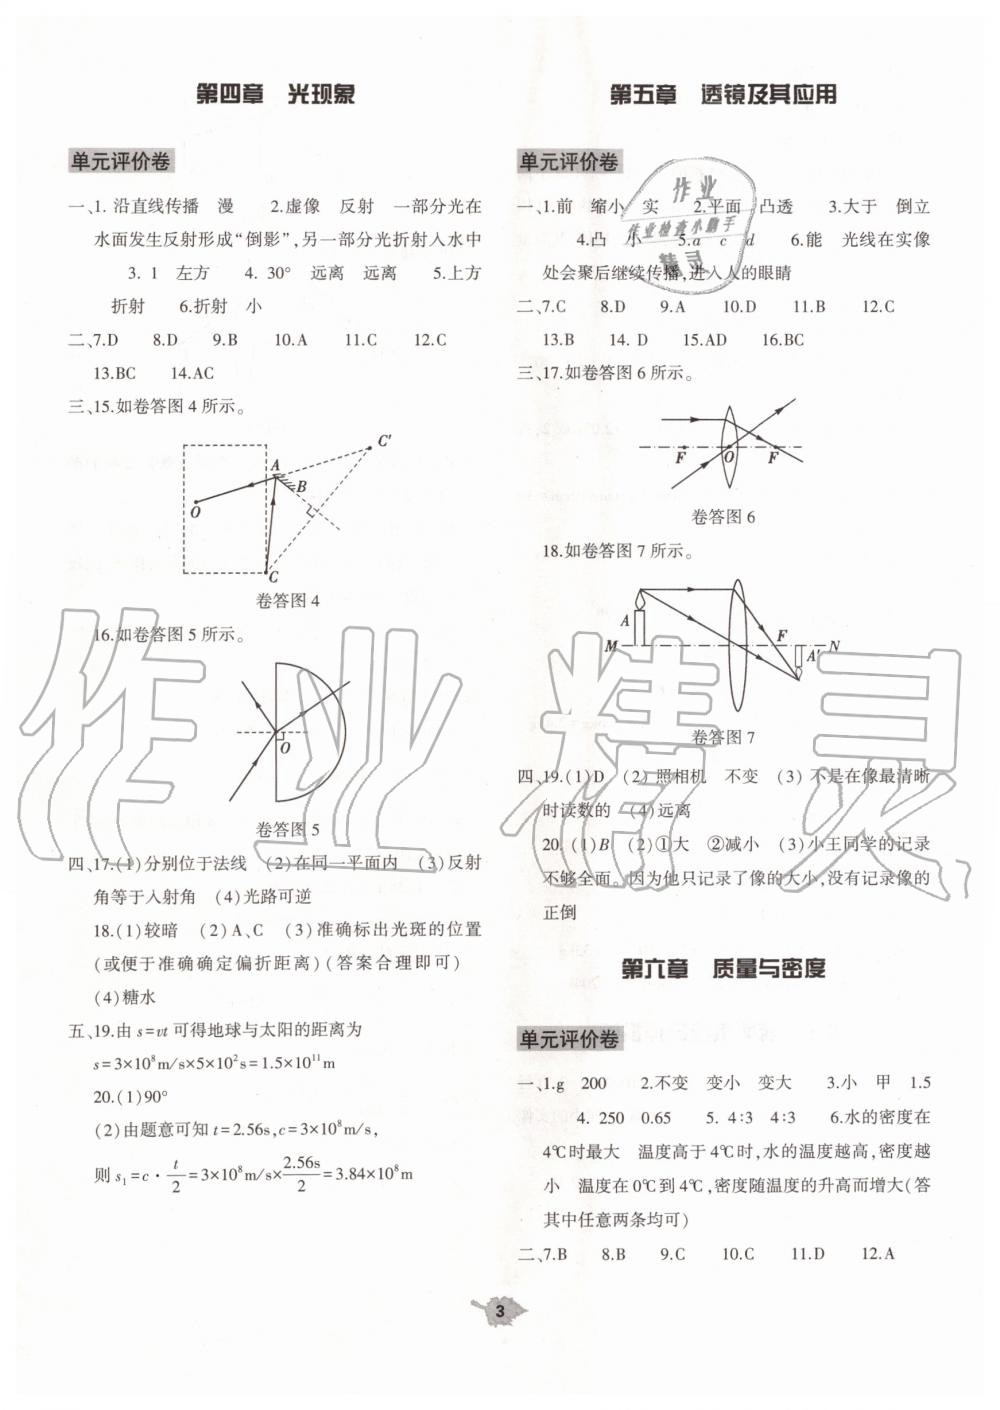 第四章　光现象
单元评价卷
一、1. 沿直线传播　漫　　2.虚像　反射　一部分光在
水面发生反射形成“倒影”,另一部分光折射入水中
3. 1　左方　　4. 30°　远离　远离　　5.上方
折射　　6.折射　小
二、7.D　　8.D　　9.B　　10.A　　11.C　　12.C
13.BC　　14.AC
三、15.如卷答图 4 所示。
C′
A
B
O
C
卷答图 4
16.如卷答图 5 所示。
O
卷答图 5
四、17.(1)分别位于法线　(2)在同一平面内　(3)反射
角等于入射角　(4)光路可逆
18.(1)较暗　(2)A、C　(3)准确标出光斑的位置
(或便于准确确定偏折距离)(答案合理即可)
(4)糖水
五、19.由 s=vt 可得地球与太阳的距离为
s=3×10⁸m/s×5×10²s=1.5×10¹¹m
20.(1)90°
(2)由题意可知 t=2.56s,c=3×10⁸m/s,
则 s₁=c·t/2=3×10⁸m/s×2.56s/2=3.84×10⁸m
第五章　透镜及其应用
单元评价卷
一、1.前　缩小　实　　2.平面　凸透　　3.大于　倒立
4.凸　小　　5.a　c　d　　6.能　光线在实像
处会聚后继续传播,进入人的眼睛
二、7.C　　8.D　　9.A　　10.D　　11.B　　12.C
13.B　　14. D　　15.AD　　16.BC
三、17.如卷答图 6 所示。
F　O　F
卷答图 6
18.如卷答图 7 所示。
A
F
M　A′　N
卷答图 7
四、19.(1)D　(2) 照相机　不变　(3) 不是在像最清晰
时读数的　(4)远离
20. (1)B　(2)①大　②减小　(3)小王同学的记录
不够全面。因为他只记录了像的大小,没有记录像的
正倒
第六章　质量与密度
单元评价卷
一、1.g　200　　2.不变　变小　变大　　3.小　甲　1.5
4. 250　0.65　　5. 4∶3　4∶3　　6.水的密度在
4℃时最大　温度高于4℃时,水的温度越高,密度越
小　温度在 0℃到 4℃,密度随温度的升高而增大(答
其中任意两条均可)
二、7.B　　8.B　　9.C　　10.C　　11.D　　12.A
3
作业
作业检查小助手
精灵
作业精灵